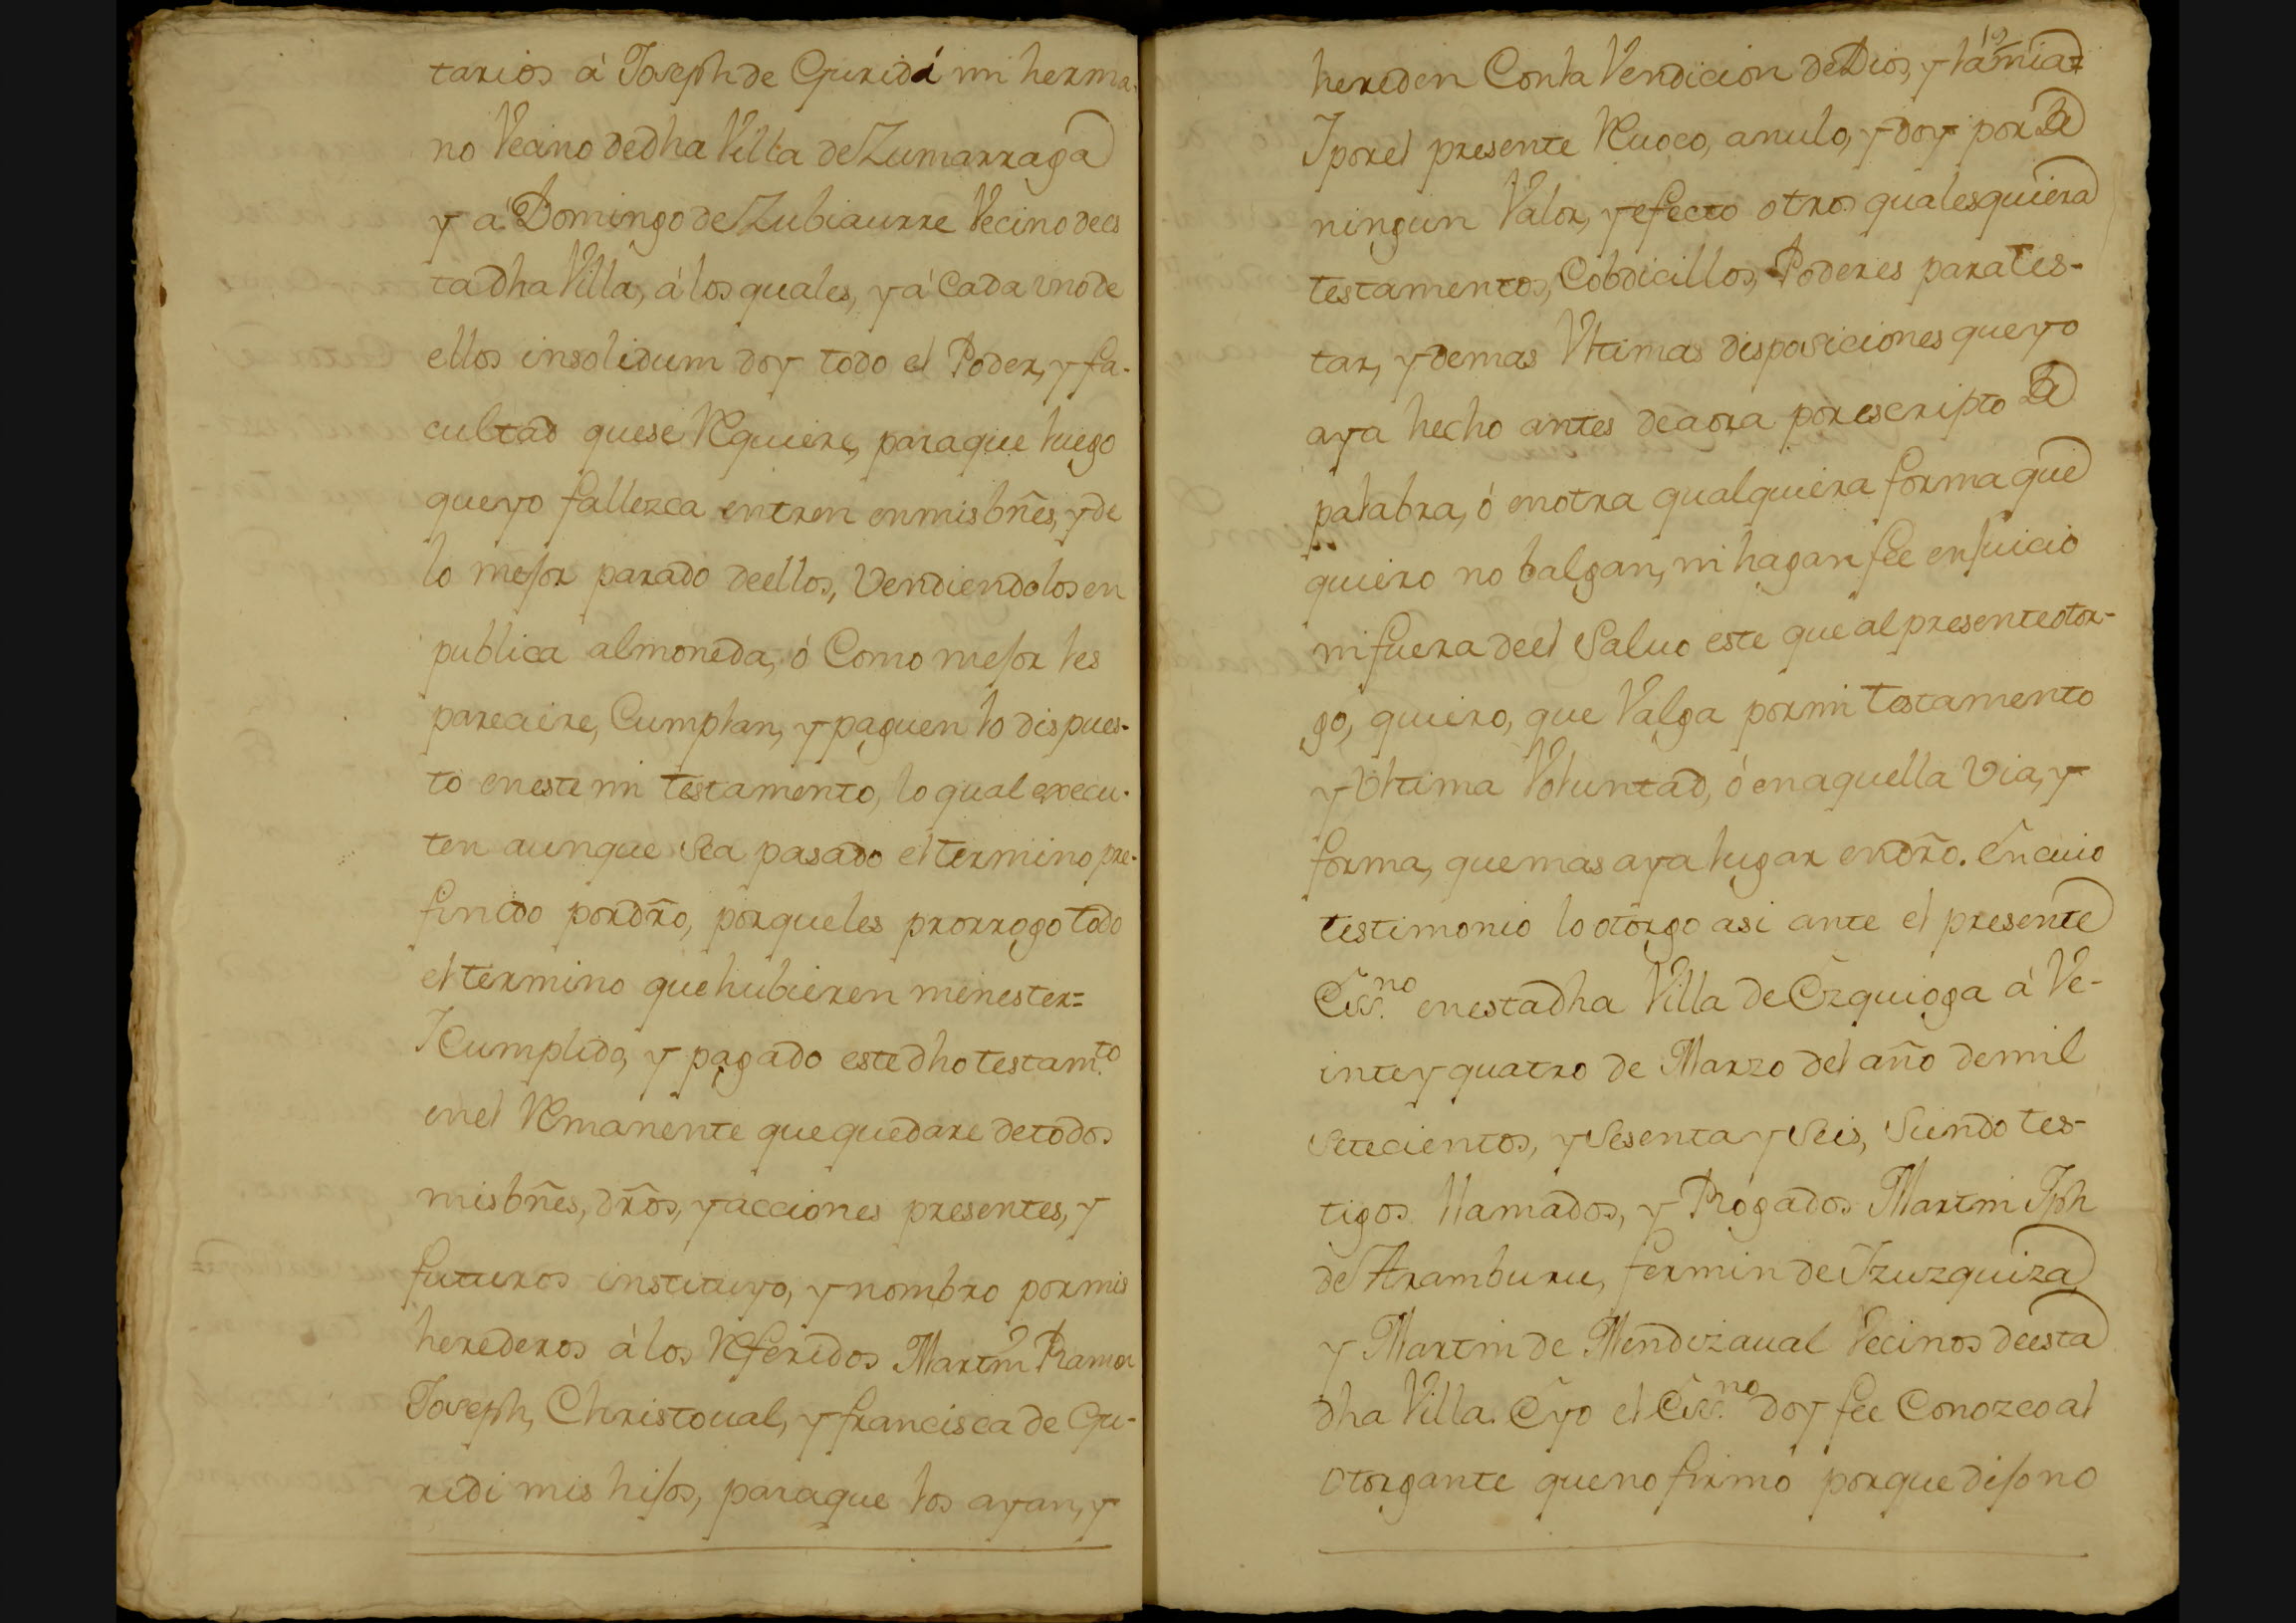 tarios á Joseph de Guridi mi herma-
no Vecino de dha Villa de Zumarraga
y a Domingo de Zubiaurre Vecino de es
ta dha Villa, á los quales, y á Cada vno de
ellos insolidum doy todo el Poder, y fa-
cultad que se Requiere, para que luego
que yo fallezca entren en mis bñes, y de
lo mejor parado de ellos, Vendiendolos en
publica almoneda, ó Como mejor les
pareciere, Cumplan, y paguen lo dispues-
to en este mi testamento, lo qual execu-
ten aunque sea pasado el termino pre-
finido por dro, porque les prorrogo todo
el termino que hubieren menester=
Y Cumplido, y pagado este dho testam.to
en el Remanente que quedare de todos
mis bñes, dros, y acciones presentes, y
futuros instituyo, y nombro por mis
herederos á los Referidos Martin Ramon
Joseph, Christoual, y francisca de Gu-
ridi mis hijos, para que los ayan, y
hereden Con la Vendicion de Dios, y la mia=
Y por el presente Reuoco, anulo, y doy por de
ningun Valor, y efecto otros qualesquiera
testamentos, Cobdicillos, Poderes para tes-
tar, y demas Vltimas disposiciones que yo
aya hecho antes de aora por escripto de
palabra, ó en otra qualquiera forma que
quiero no balgan, ni hagan fee en juicio
ni fuera de el Saluo este que al presente otor-
go, quiero, que Valga por mi testamento
y Vltima Voluntad, ó en aquella via, y
forma, que mas aya lugar en dro. En cuio
testimonio lo otorgo asi ante el presente
Ess.no en esta dha Villa de Ezquioga á Ve-
inte y quatro de Marzo del año de mil
Setecientos, y Sesenta y Seis, Siendo tes-
tigos llamados, y Rogados Martin Jph
de Aramburu, fermin de Yzuzquiza
y Martin de Mendizaual Vecinos de esta
dha Villa. E yo el Ess.no doy fee Conozco al
Otorgante que no firmó porque dijo no